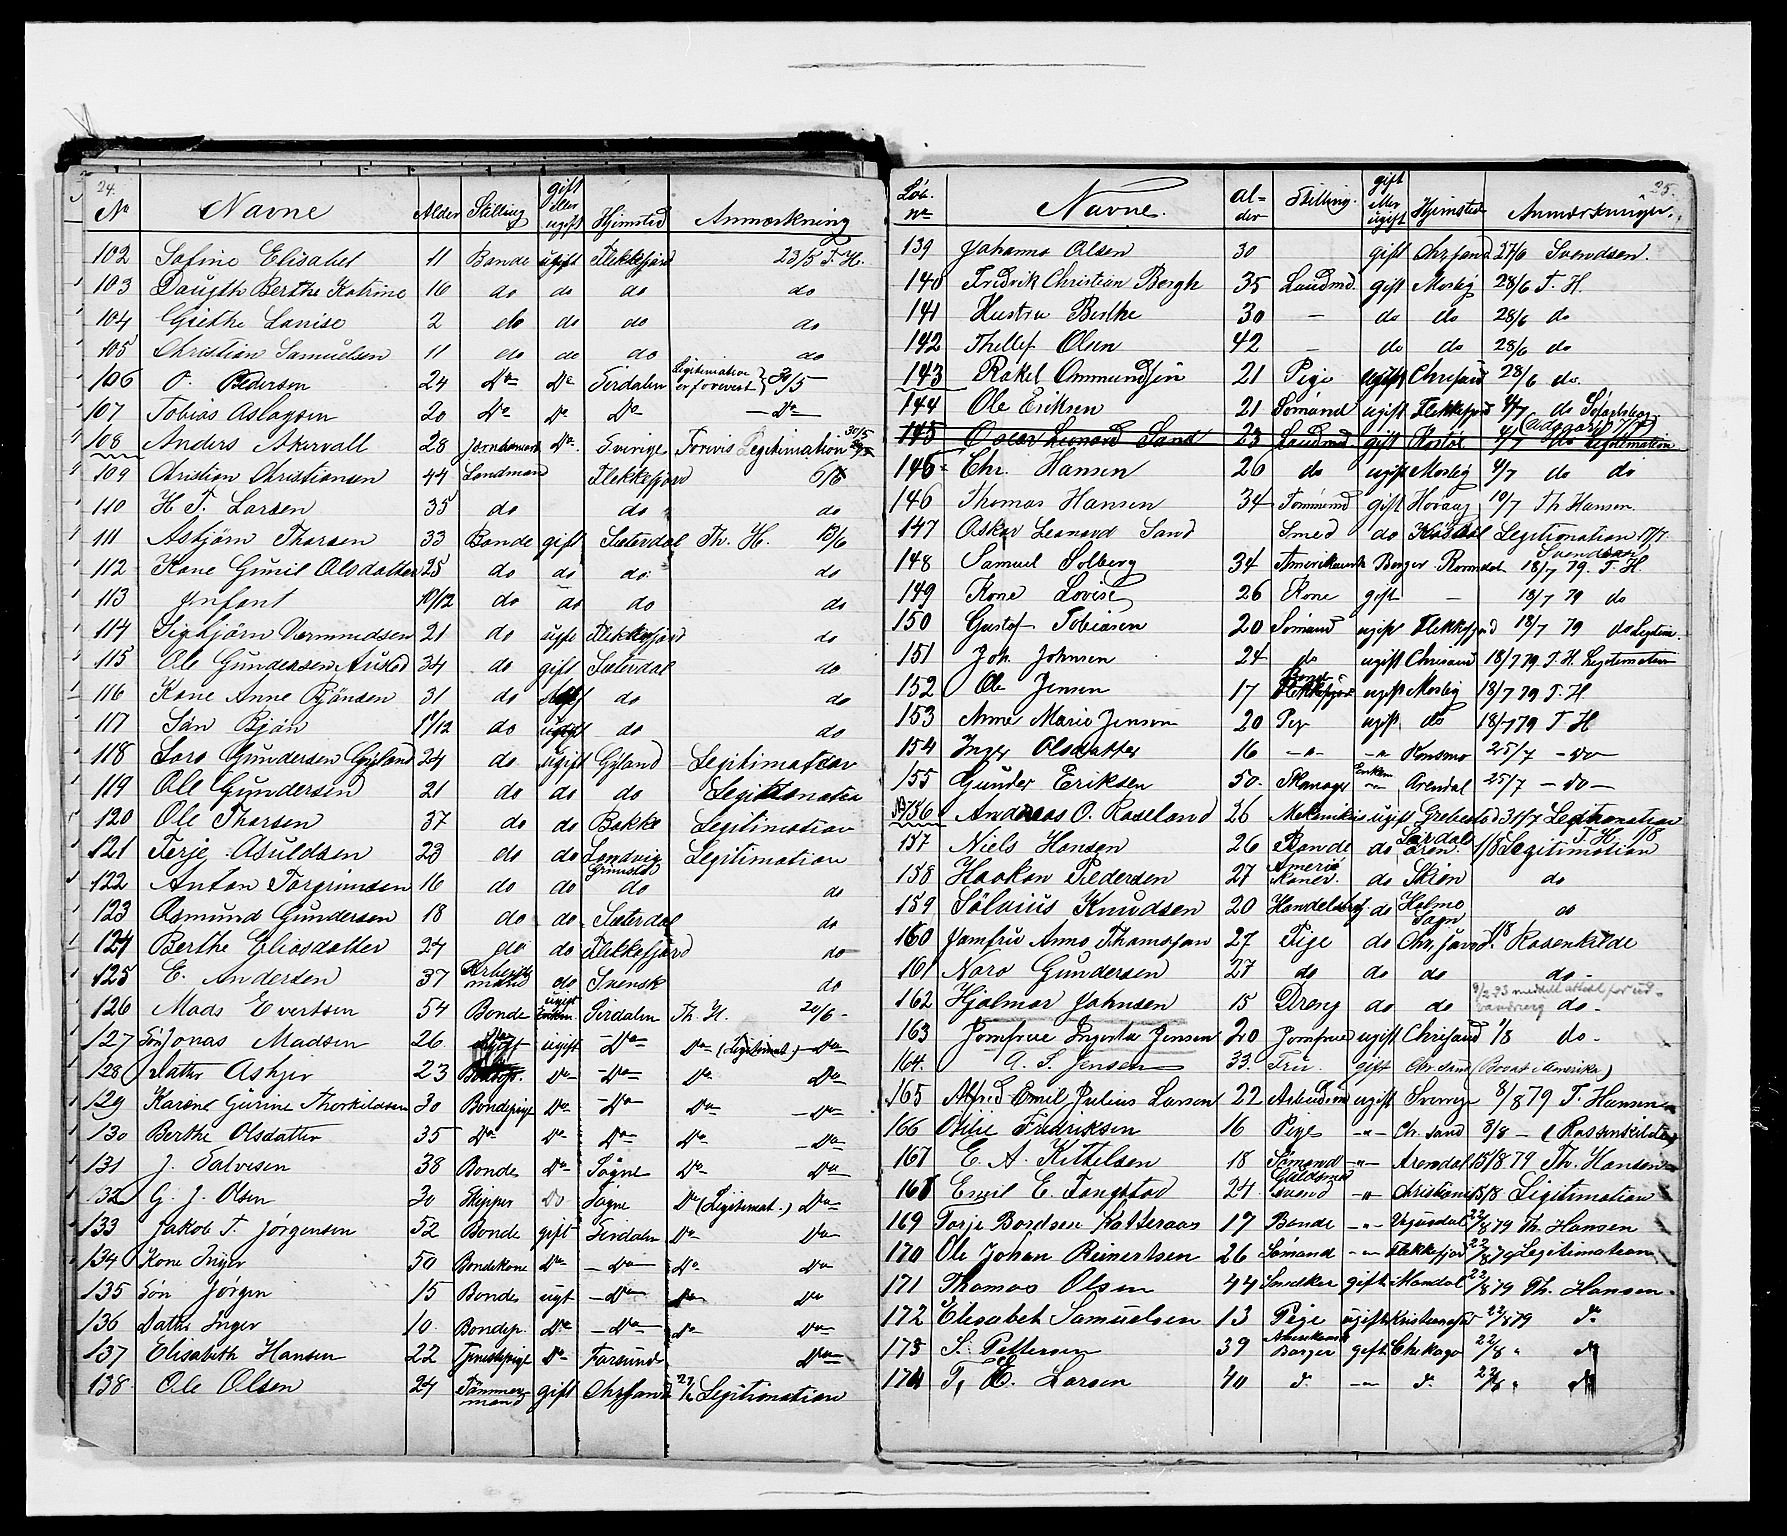 24.
No Navne Alder Stilling gift eller ugift Hjemsted Anmærkning
102 Sofine Elisabet 11 Bonde ugift Flekkefjord 23/5 T. H.
103 Daugth Berthe Katrine 16 do do do do
104 Grethe Lanise 2 do do do do
105 Christian Samuelsen 11 do do do do
106 O. Pedersen 24 Do Do Sirdalen Legitimation er forevist 30/5
107 Tobias Aslagsen 20 Do Do Do Do
108 Anders Akervall 28 Do Sverige Forevis Legitimation 30/5
109 Christian Christiansen 44 Landmand Flekkefjord 6/6
110 H. T. Larsen 35 do do do
111 Asbjörn Tharsen 33 Bonde gift Sæterdal Th. H. 13/6
112 Kone Gunil Olsdatter 25 do do do do
113 Infant 10/12 do do do do
114 Sigbjörn Værmundsen 21 do ugift Flekkefjord do
115 Ole Gundersen Austad 34 do gift Sæterdal do
116 Kone Anne Bjönsen 31 do do do
117 Sön Bjön 11/12 do ugift do do
118 Lars Gundersen Gyland 24 do ugift Gyland Legitimation
119 Ole Gundersen 21 do do do Legitimation
120 Ole Tharsen 37 do do Bakke Legitimation
121 Terje Asuldsen 23 do do Landvig Grimstad Legitimation
122 Anton Torgrimsen 16 do do do do
123 Asmund Gundersen 18 do do Sæterdal do
124 Berthe Eliasdatter 24 do do Flekkefjord do
125 E. Andersen 37 Arbeidsmand do Svensk do
126 Mads Evertsen 54 Bonde ugift Enkem. Sirdalen Th. H. 20/6
127 Sön Jonas Madsen 26 ugift Do Do (Legitimat.) Do
128 Datter Asbjer 23 Do Do Do Do
129 Karene Gurine Thorkildsen 30 Bondepige Do Do Do Do
130 Berthe Olsdatter 35 Do Do Do Do Do
131 J. Salvesen 38 Bonde Do Sogne Do Do
132 G. J. Olsen 30 Skipper Do Sogne Do (Legitimat.) Do
133 Jakob T. Jörgensen 52 Bonde gift Sirdalen Do Do
134 Kone Inger 50 Bondekone Do Do Do Do
135 Sön Jörgen 15 Bonde ugt Do Do Do
136 Dathe Inger 10 Bondep. Do Do Do Do
137 Elisabeth Hansen 22 Tjenestepige Do Farsund Do
138. Ole Olsen 24 Tömmermand gift Chrsand Legitimation
25.
Löb. No Navne. Alder Stilling. gift eller ugift Hjemsted Anmærkninger.
139 Johanna Olsen 30 gift Chrsand 27/6 Svendsen.
140 Fredrik Christian Bergh 35 Landmd. gift Mosbÿ 28/6 T. H.
141 Hustru Berthe 30 — do do 28/6 do
142 Thellef Olsen 42 — do do 28/6 do
143 Rakel Ommundsen 21 Pige ugift Chrsand 28/6 do.
144 Ole Eriksen 21 Sömand ugift Flekkefjord 4/7 do
145 Oscar Leonard Sand 23 Landmd gift 4/7 do Legitimation
146 Chr. Hansen 26 do ugift Mosbÿ 4/7 do do
146 Thomas Hansen 34 Tømmmd gift Hovaag 10/7 Th Hansen.
147 Oskar Leonard Sand Smed do Legitimation 17/7 Svendsen
148 Samuel Solberg 34 Amerikansk Borger 18/7 79. T. H.
149 Kone Lovise 26 Kone gift — 18/7 79 do
150 Gustaf Tobiasen 20 Sömand ugift Flekkefjord 18/7 79 do Legtim.
151 Joh. Johnsen 24 do ugift Chrsand 18/7 79 T. H. Legitimation
152 Ole Jensen 17 ugift Mosbÿ 18/7 79 T. H
153 Anne Marie Jensen 20 Pige ugift do 18/7 79 T H
154 Inger Olsdatter 16 —"— —" Konsmo 25/7 — do —
155 Gunder Eriksen 50. Enkem Arendal 25/7 — do —
156 Andreas O. Roseland 26 Mekanikus ugift 31/7 Legitimation
157 Niels Hansen 26 Bonde do T. H. 1/8 Legitimation
158 Haakon Pedersen 27 do Skien do
159 Sölvius Knudsen 20 do Holme Sogn do
160 Jomfru Anna Thomassen 27 Pige do Chr.sand 1/8 Rosenkilde
161 Nara Gundersen 27 do do do do -
162 Hjalmar Johnsen 15 Dreng do do do -
9/2 93 meddelt attest for udvandring
163 Jomfrue Ingerta Jensen 20 Jomfrue ugift Chrsand 1/8 do-
164. A. S. Jensen 33. Fru gift Chr.sand (Boeat i Amerika)
165 Alfred Emil Julius Larsen 22 Arbeidsm ugift Sverrige 8/8 79 T. Hansen
166 Otilie Fredriksen 16 Pige —"— Chr.sand 8/8 — (Rossenkilde)
167 E. A. Kittelsen 18 Sömand —"— Arendal 15/8 79 Th. Hansen
168 Emil E. Tangstad 24 Guldsmed Svend —"— Christiania 15/8 Legitimation
169 Torje Bordsen Katteraas 17 Bonde —"— 22/8 79 Th. Hansen
170 Ole Johan Reinertsen 26 Sömand —"— Flekkefjord 22/8 79 Legitimation
171 Thomas Olsen 44 Snedker gift Mandal 22/8 79 Th. Hansen.
172 Elisabet Samuelsen 13 Pige ugift Kristiansand 22/8 79 do
173 S. Pettersen 39 Amerikansk Borger gift Chekago 22/8 " do
174 T. E. Larsen 40 d. —"— d. 22/8 " do